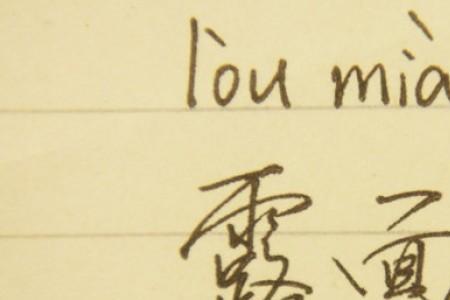 lòu mià
露面